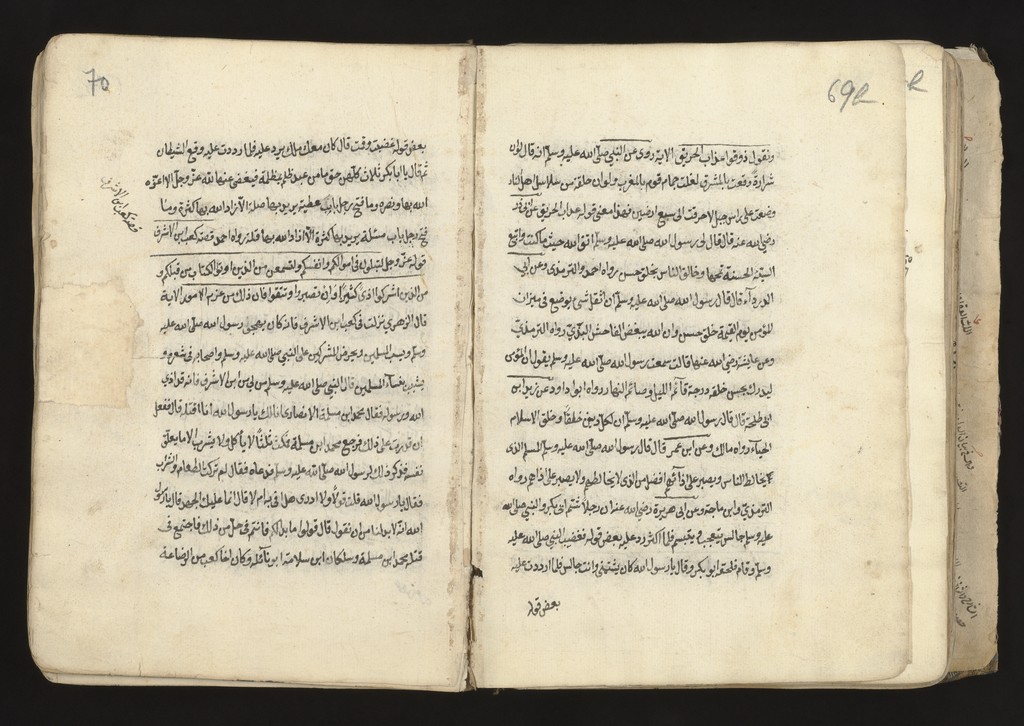 69R
ونقول ذوقوا عذاب الحريق الاية روى عن النبي صلى الله عليه وسلم انه قال لو ان
شرارة وقعت بالمشرق لغلت جماجم قوم بالمغرب ولو ان حلقة من سلاسل اهل النار
وضعت على راس جبل لاحرقت الى سبع ارضين معنى قوله عذاب الحريق عن
رضي الله عنه قال قال لي رسول الله صلى الله عليه وسلم اتق الله حيث ما كنت واتبع
السيئة الحسنة تمحها وخالق الناس بخلق حسن رواه احمد والترمذي وعن ابي
الدرداء قال قال رسول الله صلى الله عليه وسلم ان اثقل شئ يوضع في ميزان
المؤمن يوم القيمة خلق حسن وان الله يبغض الفاحش البذي رواه الترمذي
وعن عايشة رضي الله عنها قالت سمعت رسول الله صلى الله عليه وسلم يقول ان المؤمن
ليدرك بحسن خلقه درجة قائم الليل وصائم النهار رواه ابو داود عن زيد ابن
ابي طلحة قال قال رسول الله صلى الله عليه وسلم ان لكل دين خلقا وخلق الاسلام
الحياء رواه مالك وعن ابن عمر قال قال رسول الله صلى الله عليه وسلم المسلم الذي
يخالط الناس ويصبر على اذاهم افضل من الذي لا يخالطهم ولا يصبر على اذاهم رواه
الترمذي وابن ماجة وعن ابي هريرة رضي الله عنه ان رجلا شتم ابي بكر والنبي صلى الله
عليه وسلم جالس يتعجب ويتبسم فلما اكثر رد عليه بعض قوله فغضب النبي صلى الله عليه
وسلم وقام فلحقه ابو بكر وقال يا رسول الله كان يشتمني وانت جالس فلما رددت عليه
بعض قوله
70
بعض قوله غضبت وقمت قال كان معك ملك يرد عليه فلما رددت عليه وقع الشيطان
ثم قال يا ابا بكر ثلاث كلهن حق ما من عبد ظلم بظلمة فيغضي عنها لله عز وجل الا اعز
الله بها ونصره وما فتح رجل باب عطية يريد بها صلة الا زاد الله بها كثرة وما
فتح رجل باب مسئلة يريد بها كثرة الا زاد الله بها قلة رواه احمد قصة كعب ابن الاشرف
قوله عز وجل لتبلون في اموالكم وانفسكم ولتسمعن من الذين اوتوا الكتاب من قبلكم و
من الذين اشركوا اذى كثيرا وان تصبروا وتتقوا فان ذلك من عزم الامور الاية
قال الزهري نزلت في كعب ابن الاشرف فانه كان يهجو رسول الله صلى الله عليه
وسلم ويسب المسلمين ويحرض المشركين على النبي صلى الله عليه وسلم واصحابه في شعره و
يشبب بنساء المسلمين قال النبي صلى الله عليه وسلم من لي من ابن الاشرف فانه قد اذى
الله ورسوله فقال محمد ابن مسلمة الانصاري انا لك يا رسول الله انا اقتله قال فافعل
ان قدرت على ذلك فرجع محمد ابن مسلمة فمكث ثلثا لا ياكل ولا يشرب الا ما يعلق
نفسه فذكر ذلك لرسول الله صلى الله عليه وسلم فدعاه فقال لم تركت الطعام والشراب
فقال يا رسول الله قلت قولا ولا ادري هل افي به ام لا قال انما عليك الجهد قال يا رسول
الله انه لا بد لنا من ان نقول قال قولوا ما بدا لكم فانتم في حل من ذلك فاجتمع في
قتله محمد ابن مسلمة وسلكان ابن سلامة ابو نائلة وكان اخا كعب من الرضاعة
قصة كعب ابن الاشرف